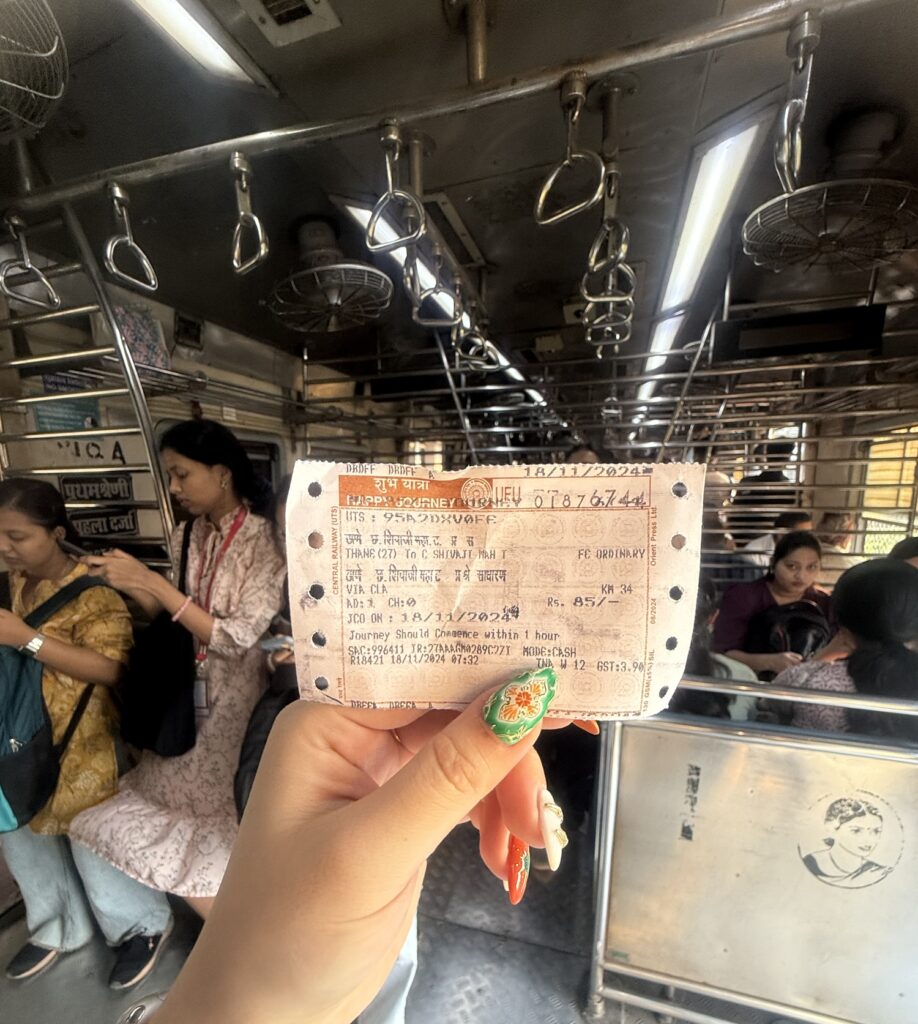 DRDFF DRDFF A 18/11/2024
शुभ यात्रा
HAPPY JOURNEY
UTS : 95A2DXV0FF
ठाणे छ.शिवाजी महा.ट. प्र श्रे
THANE(27) To C SHIVAJI MAH T FC ORDINARY
ठाणे छ.शिवाजी महा ट प्र श्रे साधारण
VIA CLA KM 34
AD:1 CH:0 Rs. 85/-
JCO ON : 18/11/2024
Journey Should Commence within 1 hour
SAC:996411 IR:27AAAGM0289C2ZI MODE:CASH
R18421 18/11/2024 07:32 TNA W 12 GST:3.90
CENTRAL RAILWAY (UTS)
Orient Press Ltd
08/2024
प्रथमश्रेणी
पहला दर्जा